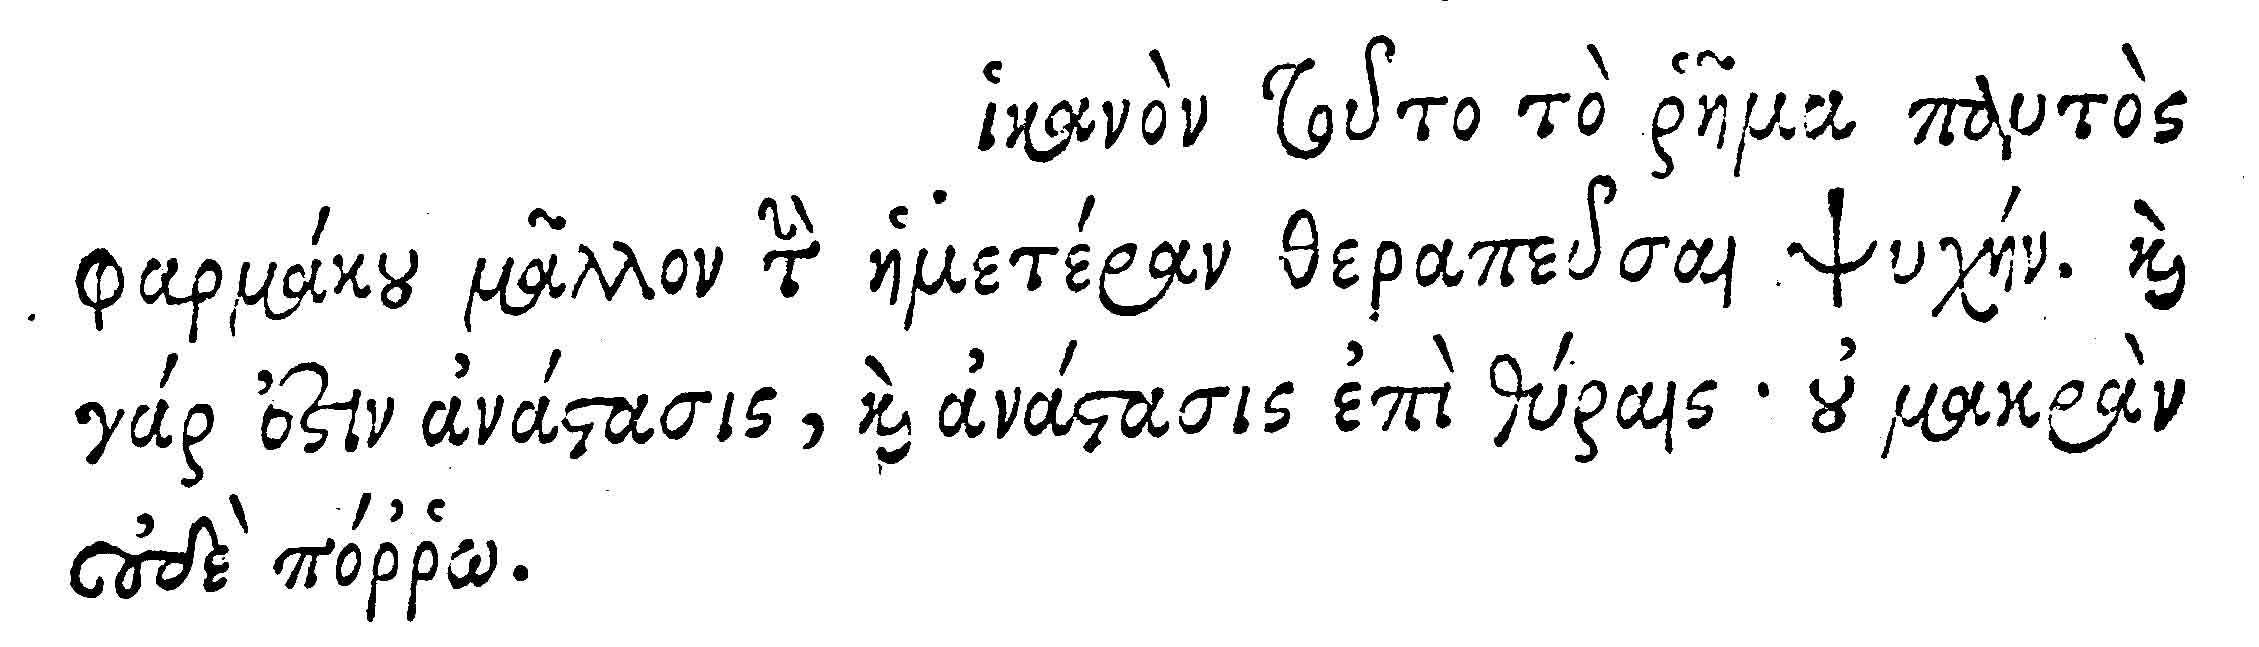 ἱκανὸν τοῦτο τὸ ῥῆμα παντὸς
φαρμάκου μᾶλλον τὴν ἡμετέραν θεραπεῦσαι ψυχήν. καὶ
γάρ ἐστιν ἀνάστασις, καὶ ἀνάστασις ἐπὶ θύραις · οὐ μακρὰν
οὐδὲ πόῤῥω.